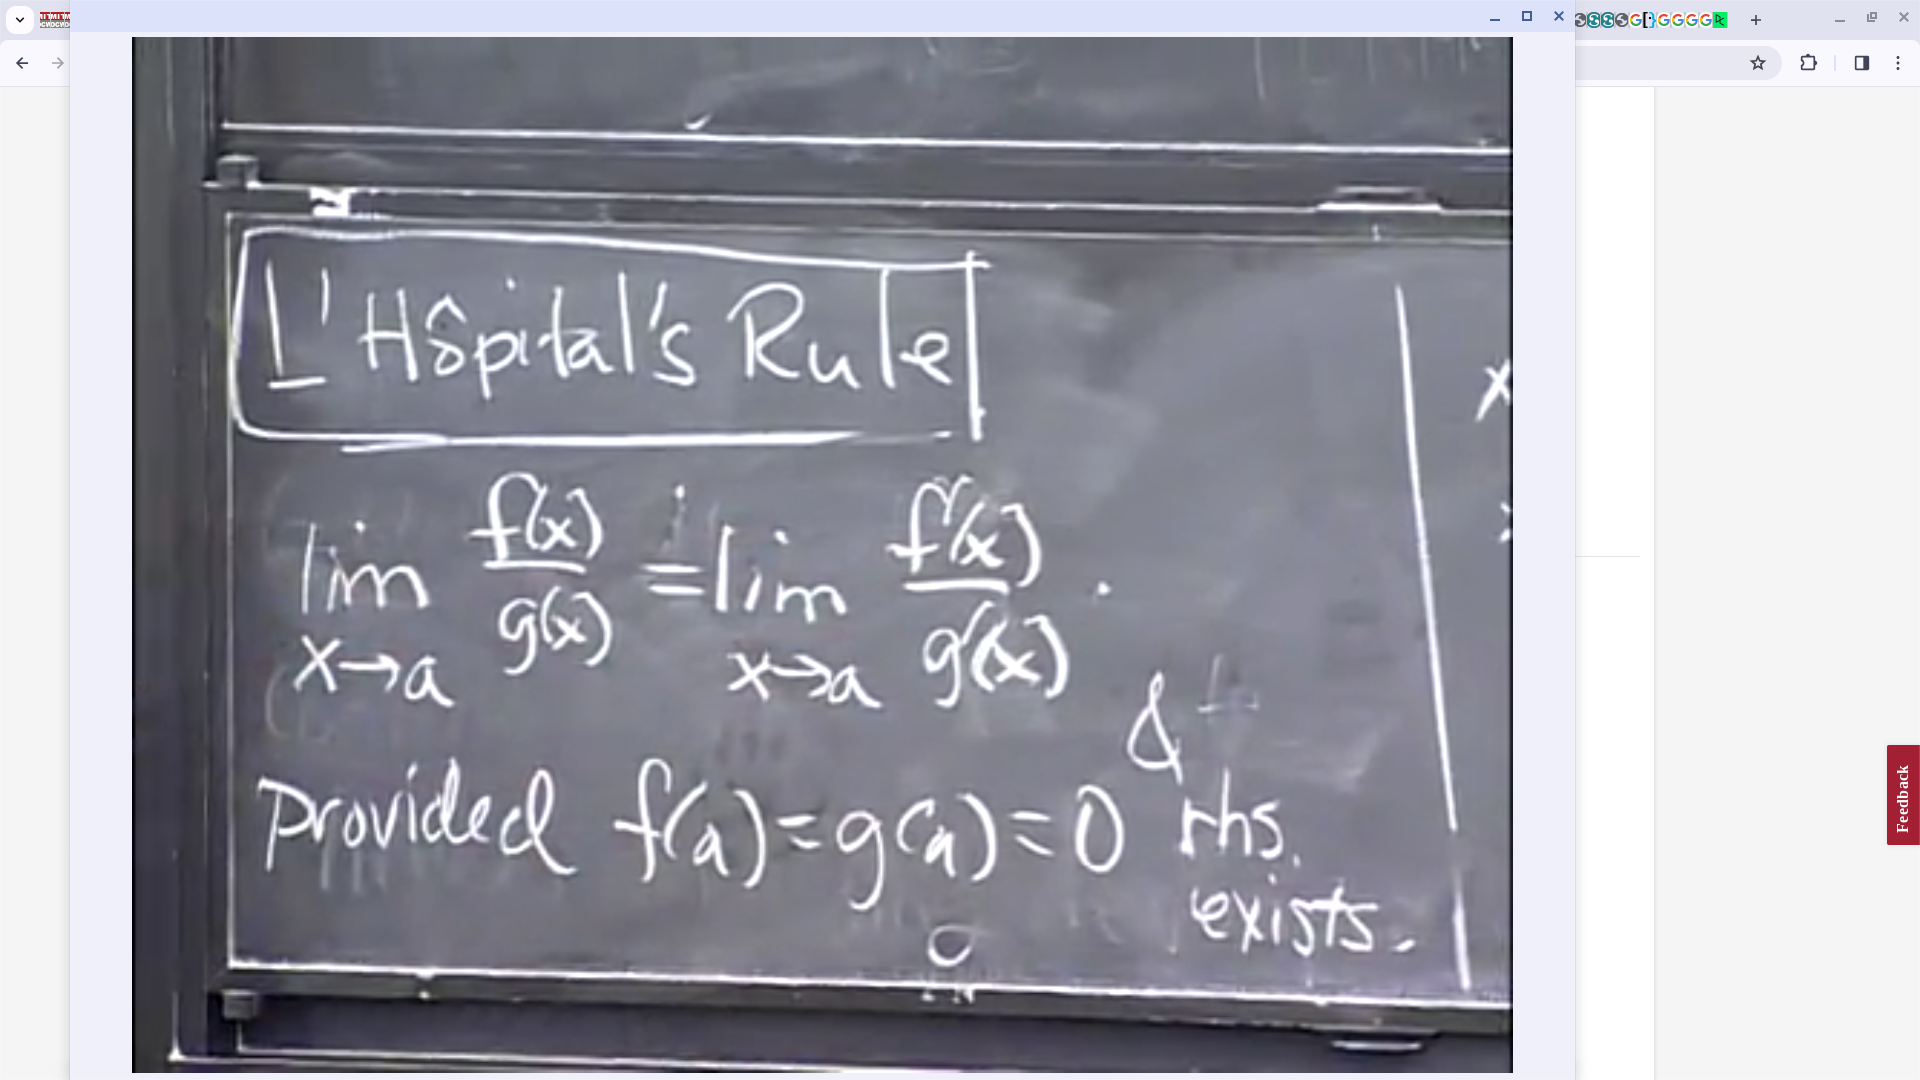 L'Hôpital's Rule
lim x→a f(x)/g(x) = lim x→a f'(x)/g'(x) .
provided f(a)=g(a)=0 & rhs. exists.
x
Feedback